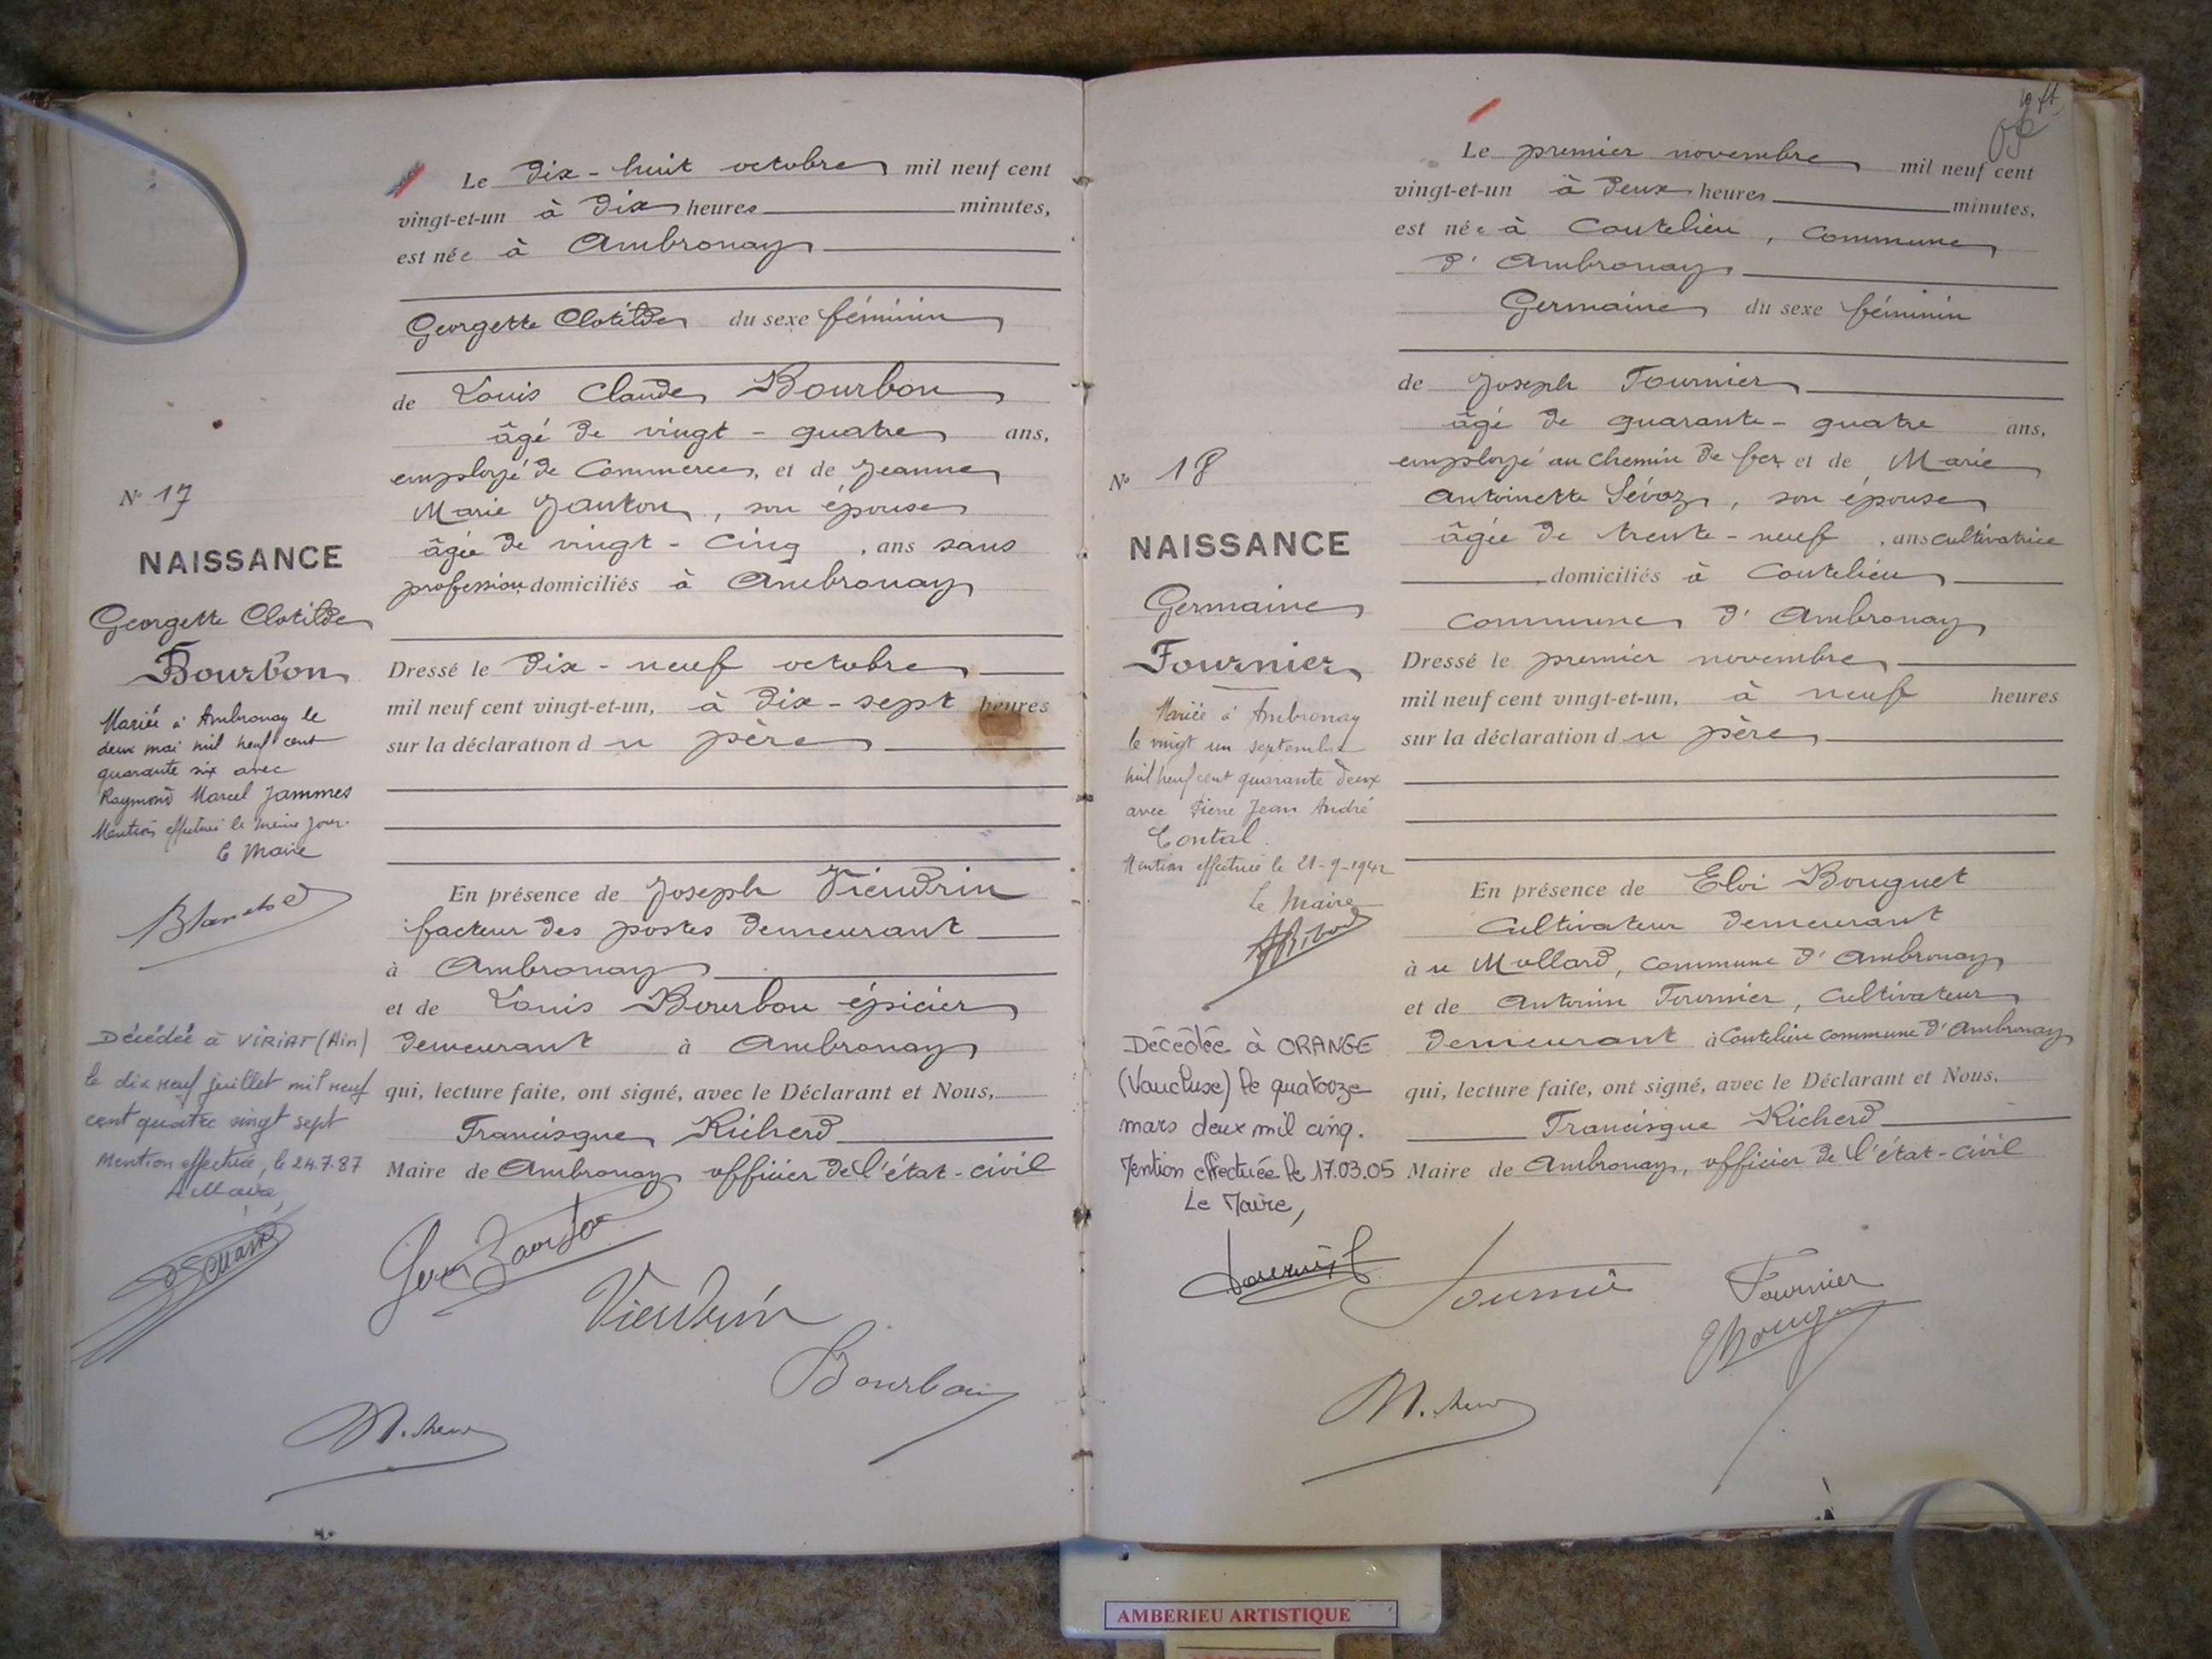 N° 17
NAISSANCE
Georgette Clotilde
Bourbon
Mariée à Ambronay le
deux mai mil neuf cent
quarante six avec
Raymond Marcel Jammes
Mention effectuée le même jour.
le Maire
Décédée à VIRIAT (Ain)
le dix neuf juillet mil neuf
cent quatre vingt sept
Mention effectuée, le 24.7.87
Le Maire,
Le dix-huit octobre mil neuf cent
vingt-et-un à dix heures minutes,
est née à Ambronay
Georgette Clotilde du sexe féminin
de Louis Claude Bourbon
âgé de vingt-quatre ans,
employé de Commerce, et de Jeanne
Marie Janton, son épouse
âgée de vingt-cinq, ans sans
profession domiciliés à Ambronay
Dressé le dix-neuf octobre
mil neuf cent vingt-et-un, à dix-sept heures
sur la déclaration du père
En présence de Joseph Vieudrin
facteur des postes demeurant
à Ambronay
et de Louis Bourbon épicier
demeurant à Ambronay
qui, lecture faite, ont signé, avec le Déclarant et Nous,
Francisque Richerd
Maire de Ambronay officier de l'état-civil
Vieudrin
Bourbon
N° 18
NAISSANCE
Germaine
Fournier
Mariée à Ambronay
le vingt un septembre
mil neuf cent quarante deux
avec Pierre Jean André
Contal.
Mention effectuée le 21-9-1942
Le Maire
Décédée à ORANGE
(Vaucluse) le quatorze
mars deux mil cinq.
Mention effectuée le 17.03.05
Le Maire,
Le premier novembre mil neuf cent
vingt-et-un à deux heures minutes,
est née à Coutelieu, Commune
d'Ambronay
Germaine du sexe féminin
de Joseph Fournier
âgé de quarante-quatre ans,
employé au chemin de fer et de Marie
Antoinette Sévoz, son épouse
âgée de trente-neuf, ans cultivatrice
domiciliés à Coutelieu
Commune d'Ambronay
Dressé le premier novembre
mil neuf cent vingt-et-un, à neuf heures
sur la déclaration du père
En présence de Eloi Bouguet
Cultivateur demeurant
à u Mollard, commune d'Ambronay
et de Antonin Fournier, Cultivateur
demeurant à Coutelieu commune d'Ambronay
qui, lecture faite, ont signé, avec le Déclarant et Nous,
Francisque Richerd
Maire de Ambronay, officier de l'état-civil
Fournier
Fournier
AMBERIEU ARTISTIQUE